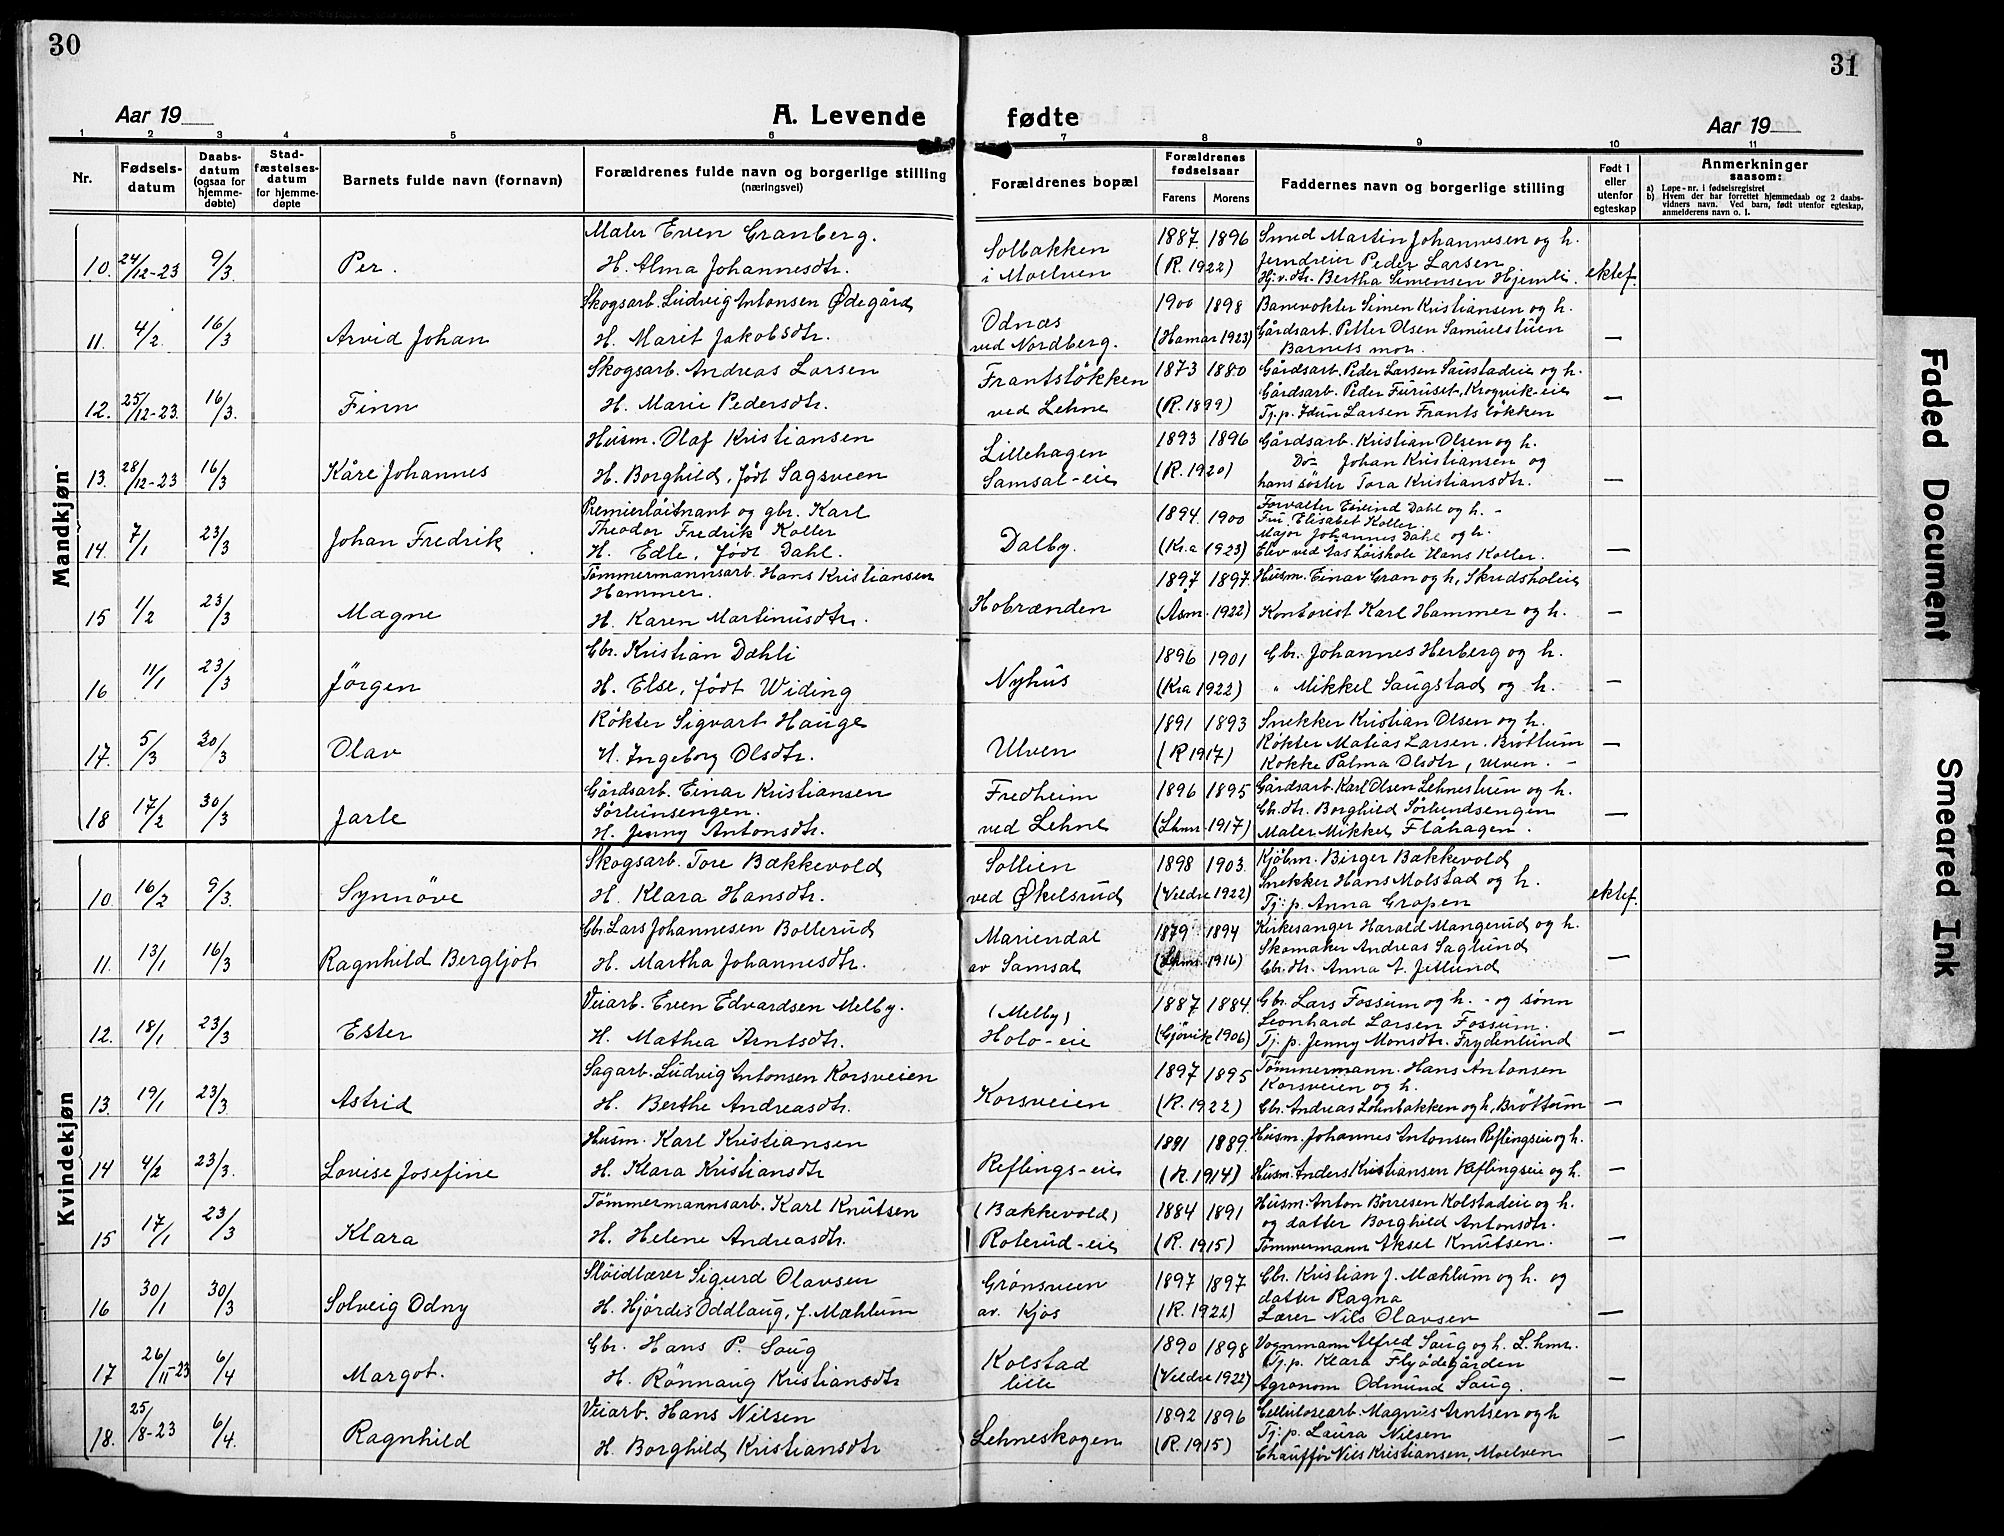 30
Aar 19
A. Levende
1 2 3 4 5 6
Nr.
Fødsels-
datum
Daabs-
datum
(ogsaa for
hjemme-
døbte)
Stad-
fæstelses-
datum
for hjemme-
døpte
Barnets fulde navn (fornavn)
Forældrenes fulde navn og borgerlige stilling
(næringsvei)
31
fødte
Aar 19
7 8 9 10 11
Forældrenes bopæl
Forældrenes
fødselsaar
Farens Morens
Faddernes navn og borgerlige stilling
Født i
eller
utenfor
egteskap
Anmerkninger
saasom:
a) Løpe-nr. i fødselsregistret
b) Hvem der har forrettet hjemmedaab og 2 daabs-
vidners navn. Ved barn, født utenfor egteskap,
anmelderens navn o. l.
Mandkjøn
10. 24/12-23 9/3 Per.
Maler Even Granberg.
H. Alma Johannesdtr.
Solbakken
i Moelven
1887. 1896
(R. 1922)
Smed Martin Johannesen og h.
Jerndreier Peder Larsen
Hj.v.dtr. Bertha Simensen Hjemli.
ektef.
11. 4/2 16/3 Arvid Johan
Skogsarb. Ludvig Antonsen Ødegård
H. Marit Jakobsdtr.
Odnæs
ved Nordberg.
1900 1898
(Hamar 1923)
Banevokter Simen Kristiansen og h.
Gårdsarb. Petter Olsen Samuelstuen
Barnets mor.
—
12. 25/12-23. 16/3. Finn
Skogsarb. Andreas Larsen
H. Marie Pedersdtr.
Frantsløkken
ved Lehne
1873 1880
(R. 1899)
Gårdsarb. Peder Larsen Saustadeie og h.
Gårdsarb. Peder Furuset, Krogvik-eie
Tj. p. Idun Larsen Frantsløkken
—
13. 28/12-23 16/3 Kåre Johannes
Husm. Olaf Kristiansen
H. Borghild, født Sagsveen
Lillehagen
Samsal-eie
1893 1896
(R. 1920)
Gårdsarb. Kristian Olsen og h.
Do- Johan Kristiansen og
hans søster Tora Kristiansdtr.
—
14. 7/1 23/3 Johan Fredrik
Premierløitnant og gbr. Karl
Theodor Fredrik Koller
H. Edle, født Dahl.
Dalby.
1894. 1900
(Kr.a 1923)
Forvalter Eivind Dahl og h. -
Fru Elisabet Koller.
Major Johannes Dahl og h.
Elev ved Aas høiskole Hans Koller.
—
15 1/2 23/3 Magne
Tømmermannsarb. Hans Kristiansen
Hammer.
H. Karen Martinusdtr.
Hobrænden
1897 1897.
(Asm. 1922)
Husm. Einar Gran og h, Skredsholeie
Kontorist Karl Hammer og h.
—
16 11/1 23/3 Jørgen
Gbr. Kristian Dæhli
H. Else, født Widing
Nyhus
1896 1901
(Kra 1922)
Gbr. Johannes Herberg og h.
" Mikkel Saugstad og h.
—
17. 5/3 30/3 Olav
Røkter Sigvart Hauge
H. Ingeborg Olsdtr.
Ulven
1891 1893
(R 1917)
Snekker Kristian Olsen og h.
Røkter Matias Larsen. Brøttum
Kokke Palma Olsdtr, Ulven. -
—
18 17/2 30/3 Jarle
Gårdsarb. Einar Kristiansen
Sørlunsengen.
H. Jenny Antonsdtr.
Fredheim
ved Lehne
1896 1895
(Lhmr. 1917)
Gårdsarb. Karl Olsen Lehnestuen og h.
Gb. dtr. Borghild Sørlundsengen
Maler Mikkel Flåhagen.
—
Kvindekjøn
10. 16/2 9/3. Synnöve
Skogsarb. Tore Bækkevold
H. Klara Hansdtr.
Sollien
ved Økelsrud
1898 1903.
(Veldre 1922)
Kjøbm. Birger Bækkevold
Snekker Hans Molstad og h.
Tj: p. Anna Gropen
ektef.
11. 13/1 16/3 Ragnhild Bergljot
Gbr. Lars Johannesen Bollerud
H. Martha Johannesdtr.
Mariendal
av Samsal
1879 1894
(Lhmr. 1916)
Kirkesanger Harald Mangerud og h.
Skomaker Andreas Saglund
Gbr. dtr. Anna A. Jetlund
—
12. 18/1 23/3 Ester
Veiarb. Even Edvardsen Melby.
H. Mathea Arntsdtr.
(Melby)
Holo-eie
1887 1884.
(Gjøvik 1906)
Gbr. Lars Fossum og h. - og sønn
Leonhard Larsen Fossum.
Tj. p. Jenny Monsdtr. Frydenlund
—
13. 19/1 23/3 Astrid
Sagarb. Ludvig Antonsen Korsveien
H. Berthe Andreasdtr.
Korsveien
1897 1895
(R. 1922)
Tømmermann. Hans Antonsen
Korsveien og h.
Gbr. Andreas Lehnbakken og h, Brøttum
—
14 4/2 23/3. Lovise Josefine
Husm. Karl Kristiansen
H. Klara Kristiansdtr
Reflings-eie
1891 1889.
(R. 1914)
Husm. Johannes Antonsen Reflingseie og h.
Husm. Anders Kristiansen Reflingseie og h.
—
15 17/1 23/3 Klara
Tømmermannsarb. Karl Knutsen
H. Helene Andreasdtr.
(Bækkevold)
Roterud-eie
1884 1891
(R. 1915)
Husm. Anton Børresen Kolstadeie og h.
og datter Borghild Antonsdtr.
Tømmermann Aksel Knutsen.
—
16 30/1 30/3 Solveig Odny
Sløidlærer Sigurd Olavsen
H. Hjørdis Oddlaug, f. Mæhlum
Grønsveen
av. Kjos
1897 1897
(R. 1922)
Gbr. Kristian J. Mæhlum og h. og
datter Ragna
Lærer Nils Olavsen
—
17 26/11-23 6/4 Margot.
Gbr. Hans P. Saug
H. Rønnaug Kristiansdtr
Kolstad
lille
1890 1898
(Veldre 1922)
Vognmann Alfred Saug og h. Lhmr.
Tj. p. Klara Flyødegården
Agronom Odmund Saug.
—
18. 25/8-23 6/4. Ragnhild
Veiarb. Hans Nilsen
H. Borghild Kristiansdtr
Lehneskogen
1892 1896
(R. 1915)
Cellulosearb. Magnus Arntsen og h
Tj: p. Laura Nielsen
Chauffør Nils Kristiansen, Moelven
—
Faded Document
Smeared Ink